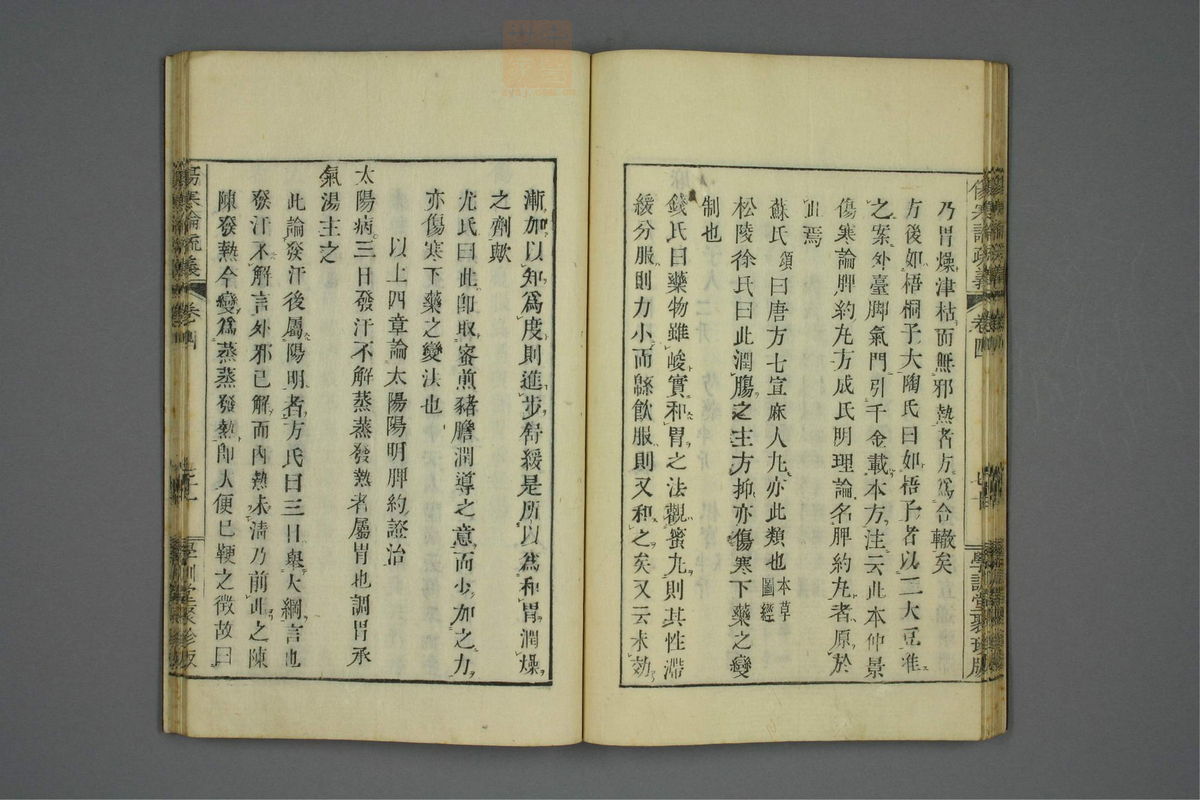 乃胃燥津枯而無邪熱者方爲合轍矣
方後如梧桐子大陶氏曰如梧子者以二大豆准
之案外臺脚氣門引千金載本方注云此本仲景
傷寒論脾約丸方成氏明理論名脾約丸者原於
此焉
蘇氏頌曰唐方七宣麻人丸亦此類也本草圖經
松陵徐氏曰此潤腸之主方抑亦傷寒下藥之變
制也
錢氏曰藥物雖峻實和胃之法觀蜜丸則其性滯
緩分服則力小而緜飮服則又和之矣又云未効
漸加以知爲度則進步舒緩是所以爲和胃潤燥
之劑歟
尤氏曰此卽取蜜煎豬膽潤導之意而少加之力
亦傷寒下藥之變法也
以上四章論太陽陽明脾約證治
太陽病三日發汗不解蒸蒸發熱者屬胃也調胃承
氣湯主之
此論發汗後屬陽明者方氏曰三日舉大綱言也
發汗不解言外邪已解而內熱未淸乃前此之陳
陳發熱今變爲蒸蒸發熱卽大便已鞕之徵故曰
傷寒論疏義
卷四
學訓堂聚珍版